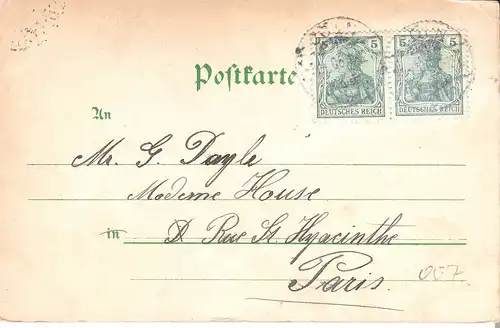 5 5
DEUTSCHES REICH DEUTSCHES REICH
Postkarte
An
Mr. G. Dayle
Moderne House
in D Rue St. Hyacinthe
Paris.
007